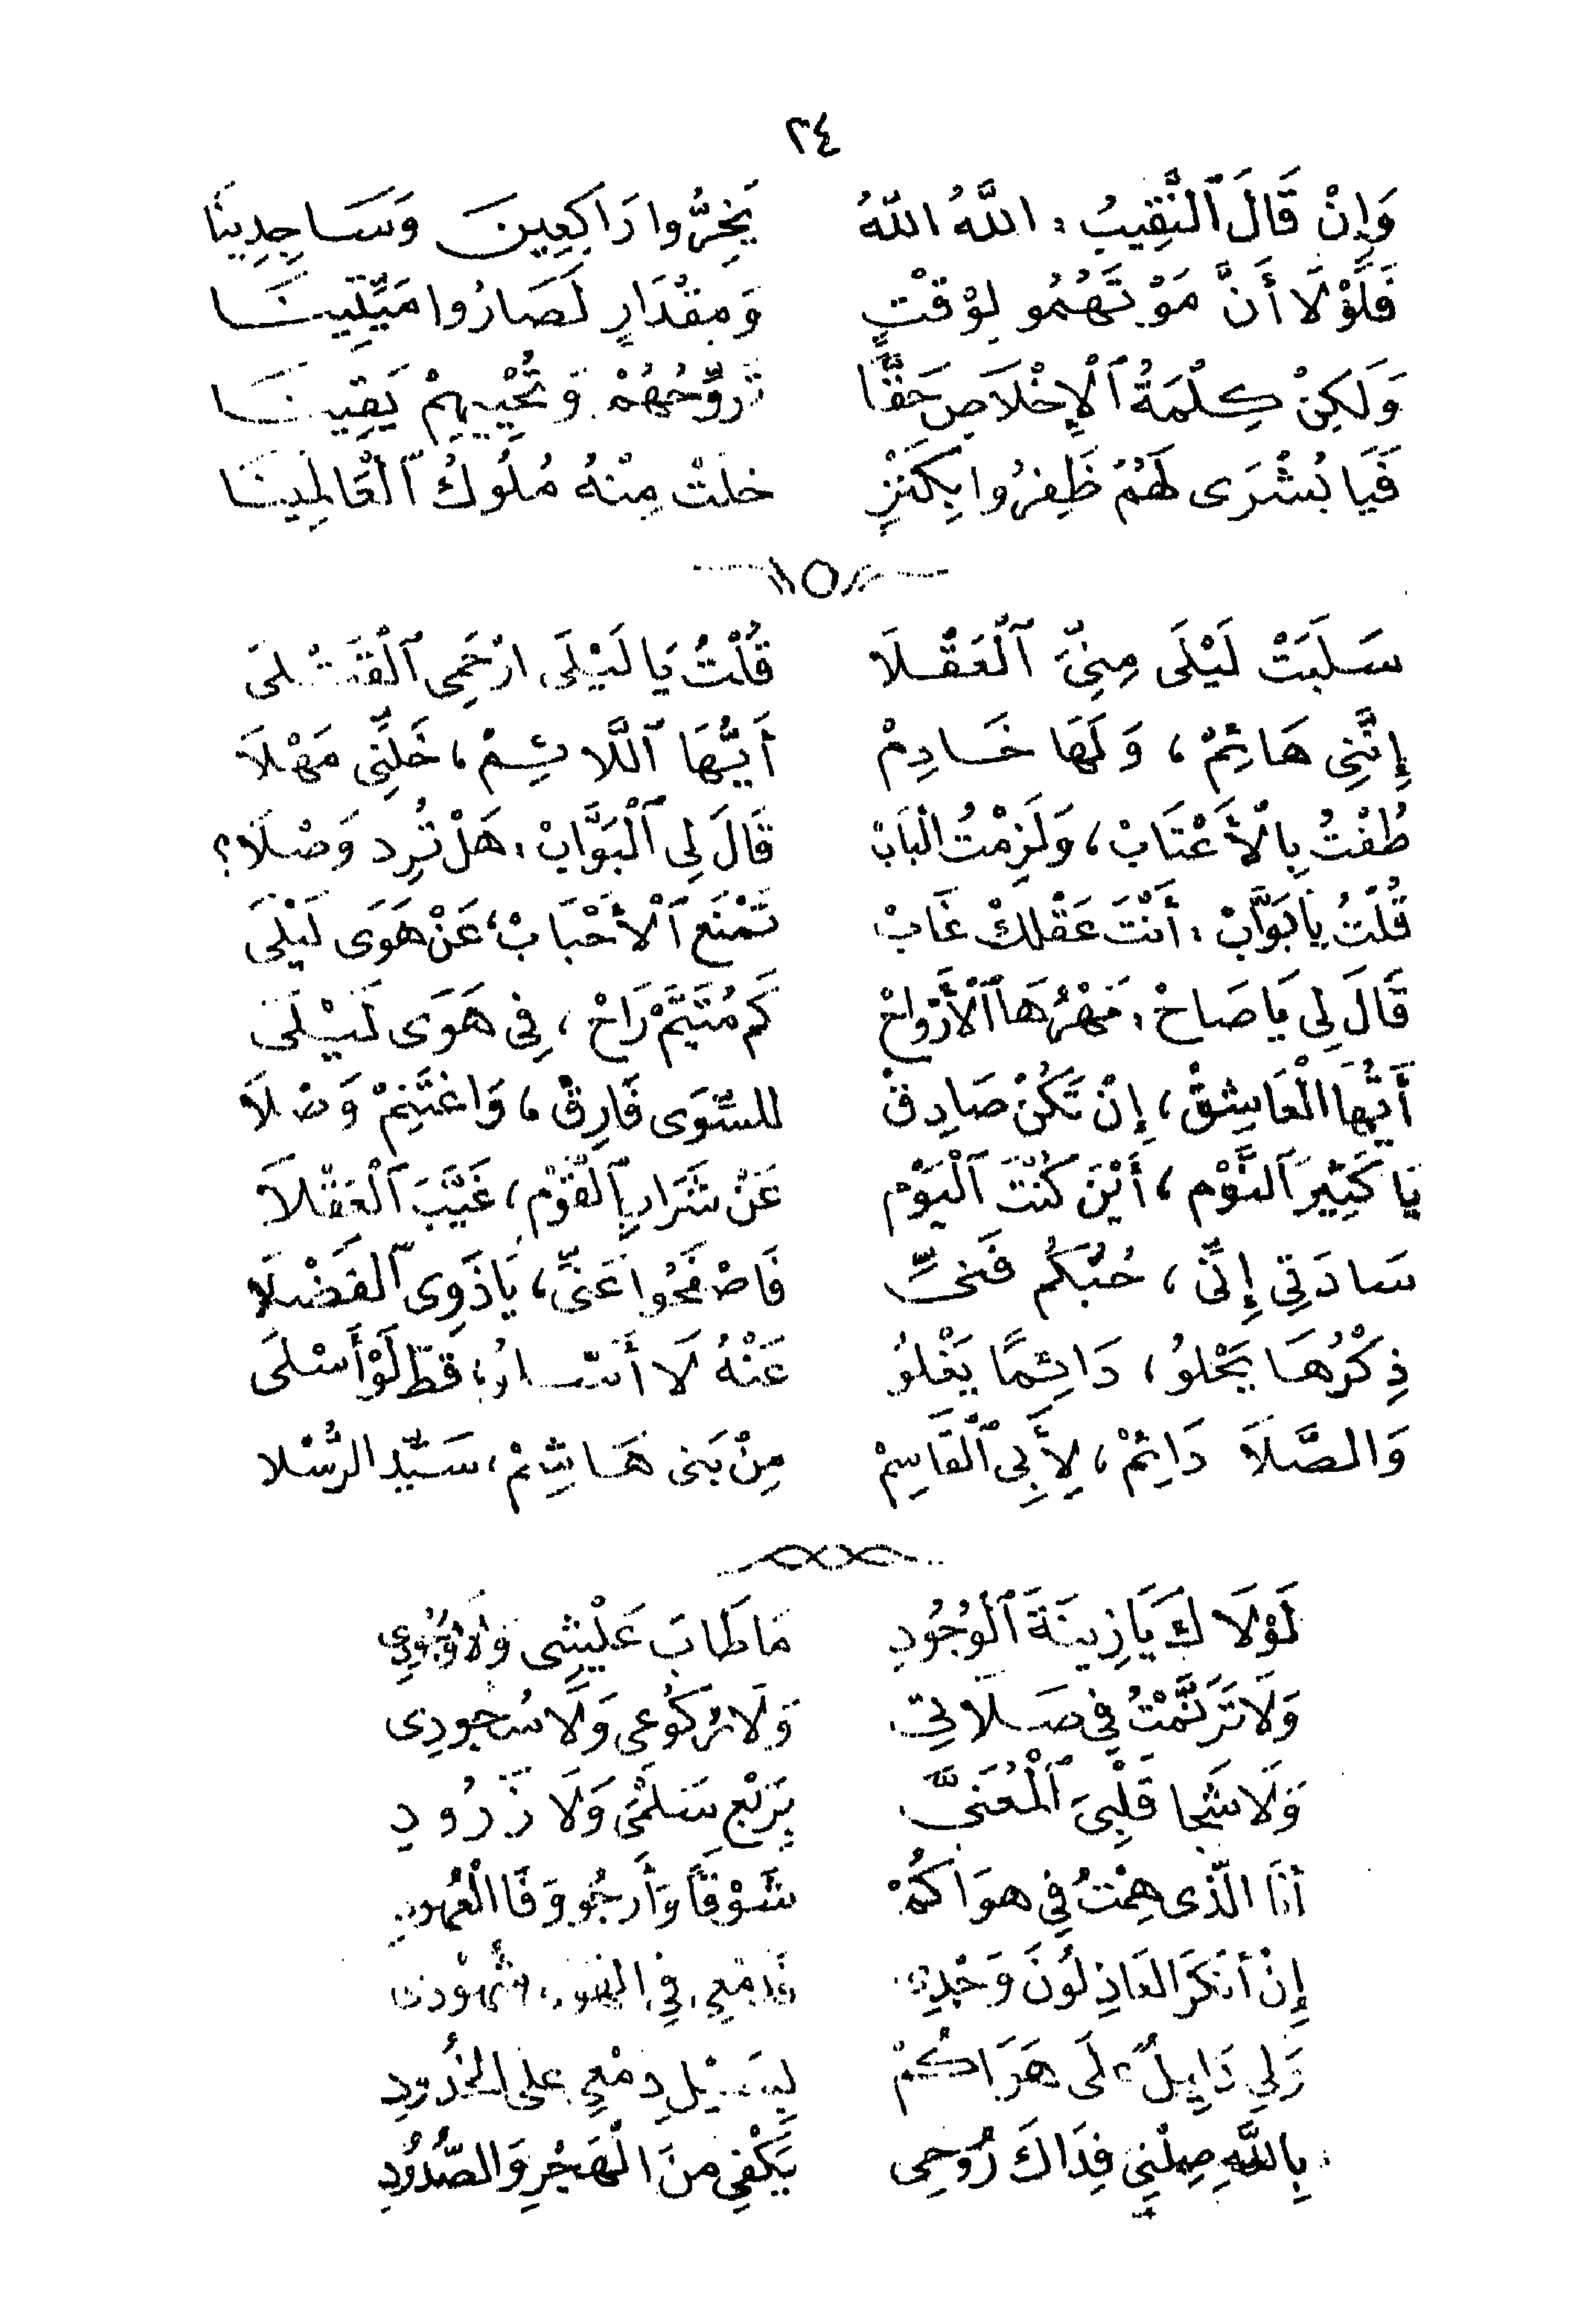 ٢٤
وَإِنْ قَالَ ٱلنَّقِيبُ : اللَّهُ اللهُ يَخِرُّوا رَاكِعِينَ وَسَاجِدِينَا
فَلَوْلَا أَنَّ مَوْتَهُمُو لِوَقْتٍ وَمِقْدَارٍ لَصَارُوا مَيِّتِينَا
وَلَكِنْ كِلْمَةُ ٱلْإِخْلَاصِ حَقًّا تُرَوِّحُهُمْ وَتُحْيِيهِمْ يَقِينَا
فَيَا بُشْرَى لَهُمْ ظَفِرُوا بِكَنْزٍ خلَتْ مِنْهُ مُلُوكُ ٱلْعَالَمِينَا
سَلَبَتْ لَيْلَى مِنِّىَ ٱلْعَقْلَا قُلْتُ يَا لَيْلَى ارْحَمِى ٱلْقَتْلَى
إِنَّنِى هَائِمْ ، وَلَهَا خَادِمْ أَيُّهَا ٱللَّائِمْ ، خَلِّنِى مَهْلَا
طُفْتُ بِالْأَعْتَابْ ، وَلَزِمْتُ الْبَابْ قَالَ لِى ٱلْبَوَّابْ : هَلْ تُرِد وَصْلَا ؟
قُلْتُ يَا بَوَّابْ : أَنْتَ عَقْلكْ غَابْ تَمْنَع ٱلْأَحْبَابْ ، عَنْ هَوَى لَيْلَى
قَالَ لِى يَا صَاحْ : مَهْرُهَا ٱلْأَرْوَاحْ كَم مُتَيَّمْ رَاحْ ، فِى هَوَى لَيْلَى
أَيُّهَا الْعَاشِقْ ، إِنْ تَكُنْ صَادِقْ للسِّوَى فَارِقْ ، وَاغْتَنِمْ وَصْلَا
يَا كَثِيرَ ٱلنَّوْم ، أَيْنَ كُنْتَ ٱلْيَوْم عَنْ شَرَابِ ٱلْقَوْم ، غَيَّبَ ٱلْعَقْلَا
سَادَتِى إِنِّى ، حُبُّكُم فَنِّى فَاصْفَحُوا عَنِّى ، يَا ذَوِى ٱلفَضْلَا
ذِكْرُهَا يَحْلو ، دَائِمًا يَعْلُو عَنْهُ لَا أَسْلو ، قطّ لَوْ أَسْلَى
وَالصَّلَا دَائِمْ ، لِأَبِى ٱلْقَاسِمْ مِنْ بَنى هَاشِمْ ، سَيِّد الرُّسْلا
لَوْلَاكَ يَا زِينَةَ ٱلْوُجُودِ مَا طَابَ عَيْشِى وَلَا وُجُودِى
وَلَا تَرَنَّمْتُ فِى صَلَاتِى وَلَا رُكُوعِى وَلَا سُجودِى
وَلَا شَجا قَلْبِىَ ٱلْمُعَنَّى بِرَبْعِ سَلْمَى وَلَا زَرُودِ
أَنَا الَّذى هِمْتُ فِى هوَاكُمْ شَوْقًا وَأَرجُو وَفَا الْعُهودِ
إِنْ أَنْكَرَ العَاذِلُونَ وَجْدِى فَدَمْعِى فِى شُهُودِى
وَلِى دَلِيلٌ عَلَى هَوَاكُمْ بِسَيْلِ دمْعِى على الخُدُودِ
بِاللَّهِ صِلْنِى فِدَاكَ رُوحِى يَكْفِى منَ الْهَجْرِ وَالصُّدُودِ